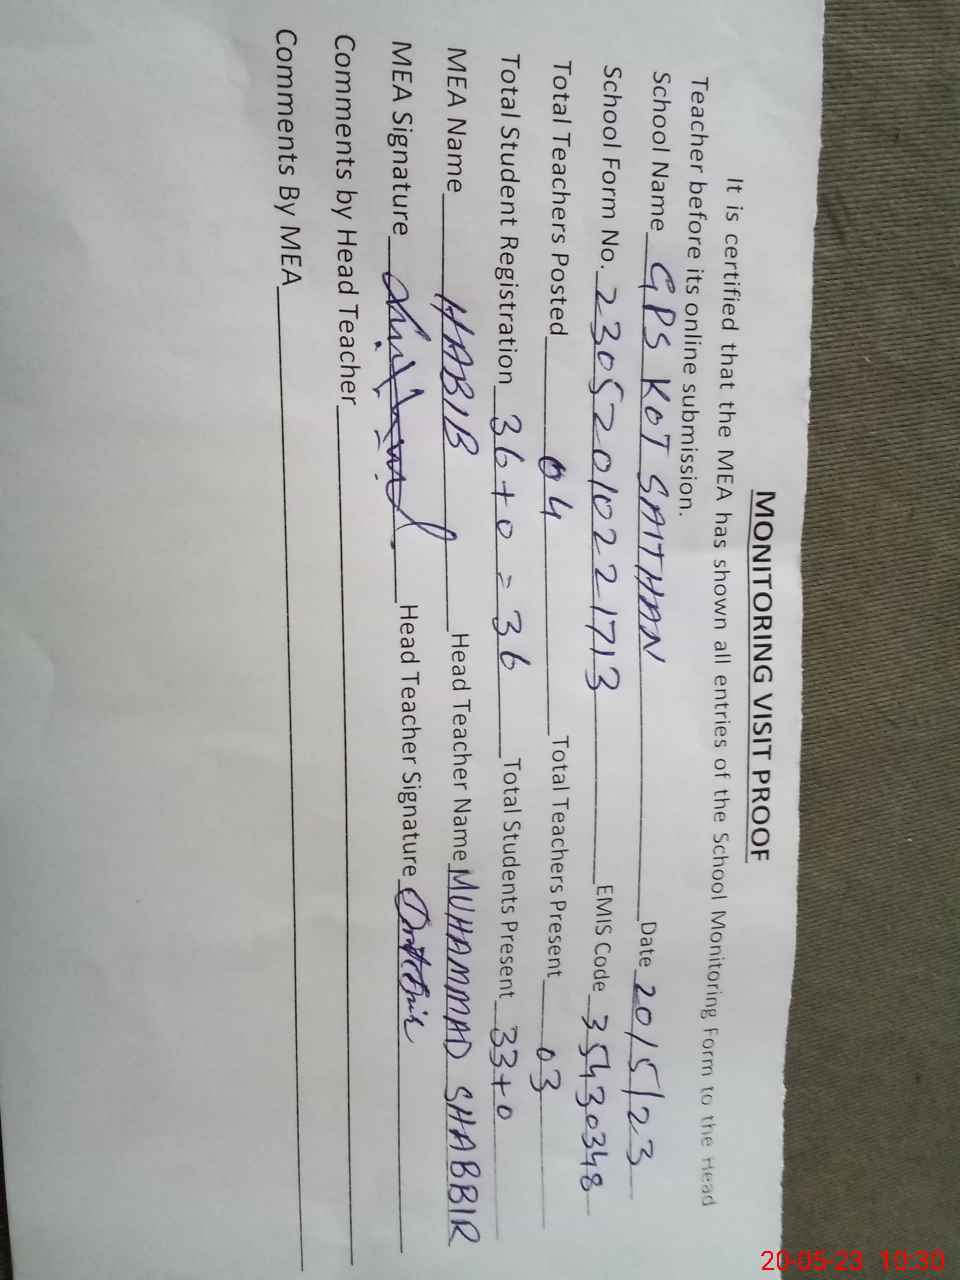 MONITORING VISIT PROOF
It is certified that the MEA has shown all entries of the School Monitoring Form to the Head
Teacher before its online submission.
School Name GPS KOT SAITHAN Date 20/5/23
School Form No. 23052010221713 EMIS Code 35430348
Total Teachers Posted 04 Total Teachers Present 03
Total Student Registration 36+0 = 36 Total Students Present 33+0
MEA Name HABIB Head Teacher Name MUHAMMAD SHABBIR
MEA Signature Head Teacher Signature
Comments by Head Teacher
Comments By MEA
20-05-23 10:30